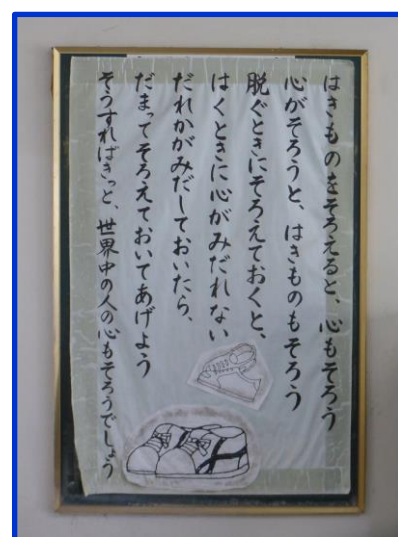 はきものをそろえると、心もそろう
心がそろうと、はきものもそろう
脱ぐときにそろえておくと、
はくときに心がみだれない
だれかがみだしておいたら、
だまってそろえておいてあげよう
そうすればきっと、世界中の人の心もそろうでしょう